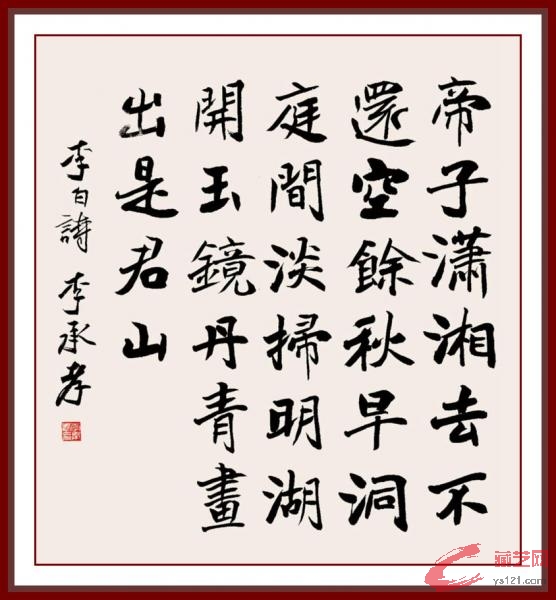 帝子瀟湘去不
還空餘秋早洞
庭間淡掃明湖
開玉鏡丹青畫
出是君山
李白詩 李承孝
藏艺网
ys121.com